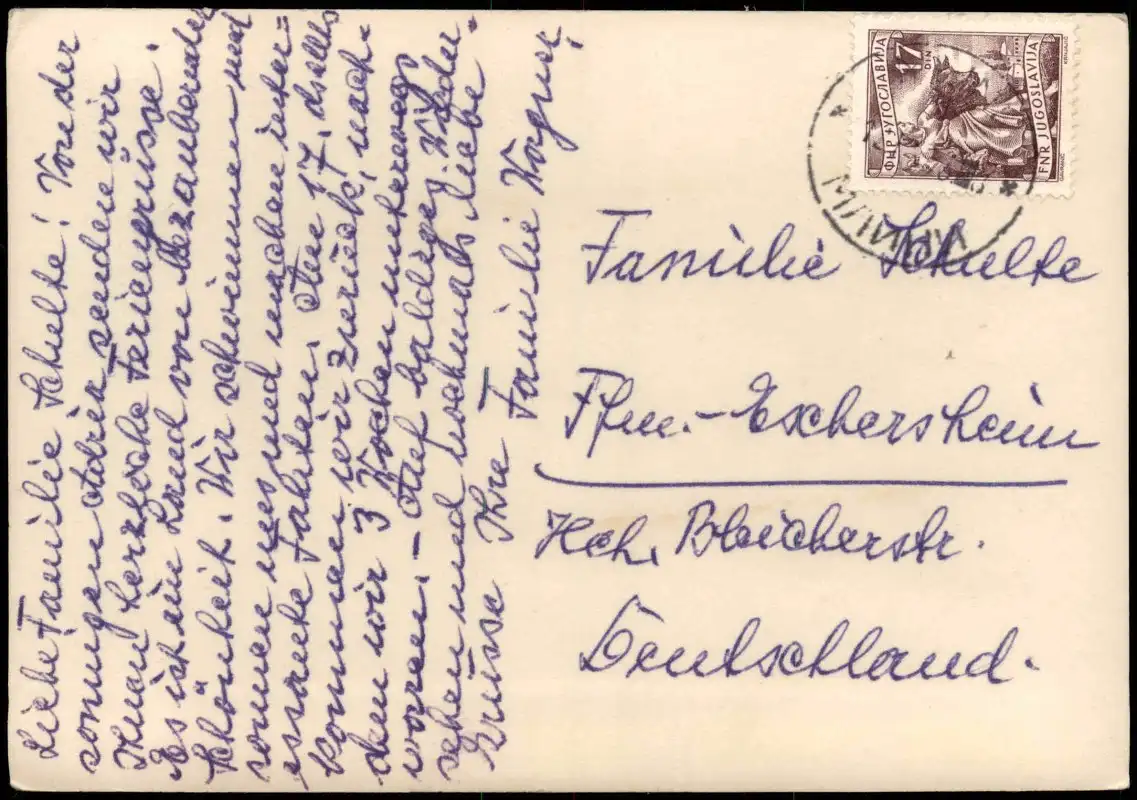 Liebe Familie Schulte! Von der
sonnigen Adria senden wir
Ihnen herzliche Feriengrüsse.
Es ist ein Land von bezaubernder
Schönheit. Wir schwimmen und
sonnen uns und machen inter=
essante Fahrten. Am 17. ds.
kommen wir zurück, nach-
dem wir 3 Wochen unterwegs
waren. - Auf baldiges Wieder-
sehen und nochmals liebe
Grüsse Ihre Familie Wagner,
ФНР ЈУГОСЛАВИЈА
17
DIN
FNR JUGOSLAVIJA
Familie Schulte
Ffm.-Eschersheim
Hch. Bleicherstr.
Deutschland.